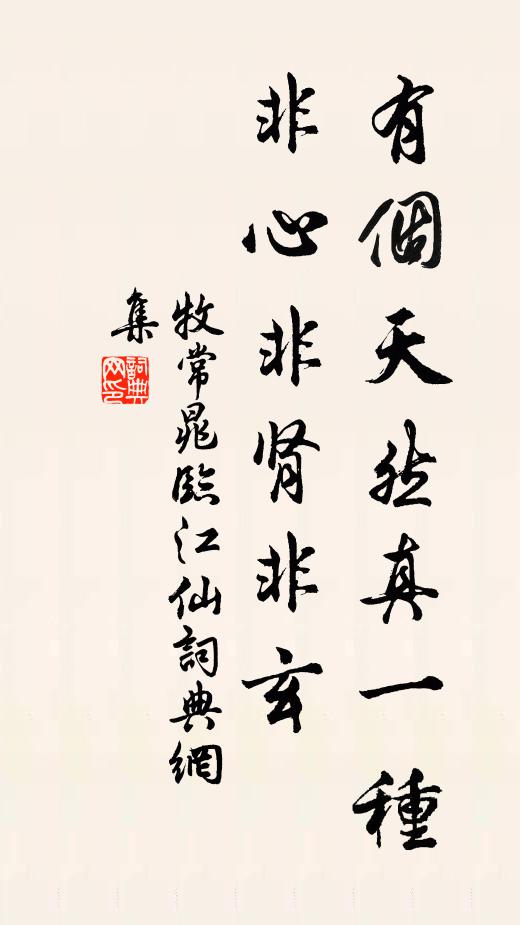 有個天然真一種
非心非肾非玄
牧常晁臨江仙詞典網
集
詞典
网印